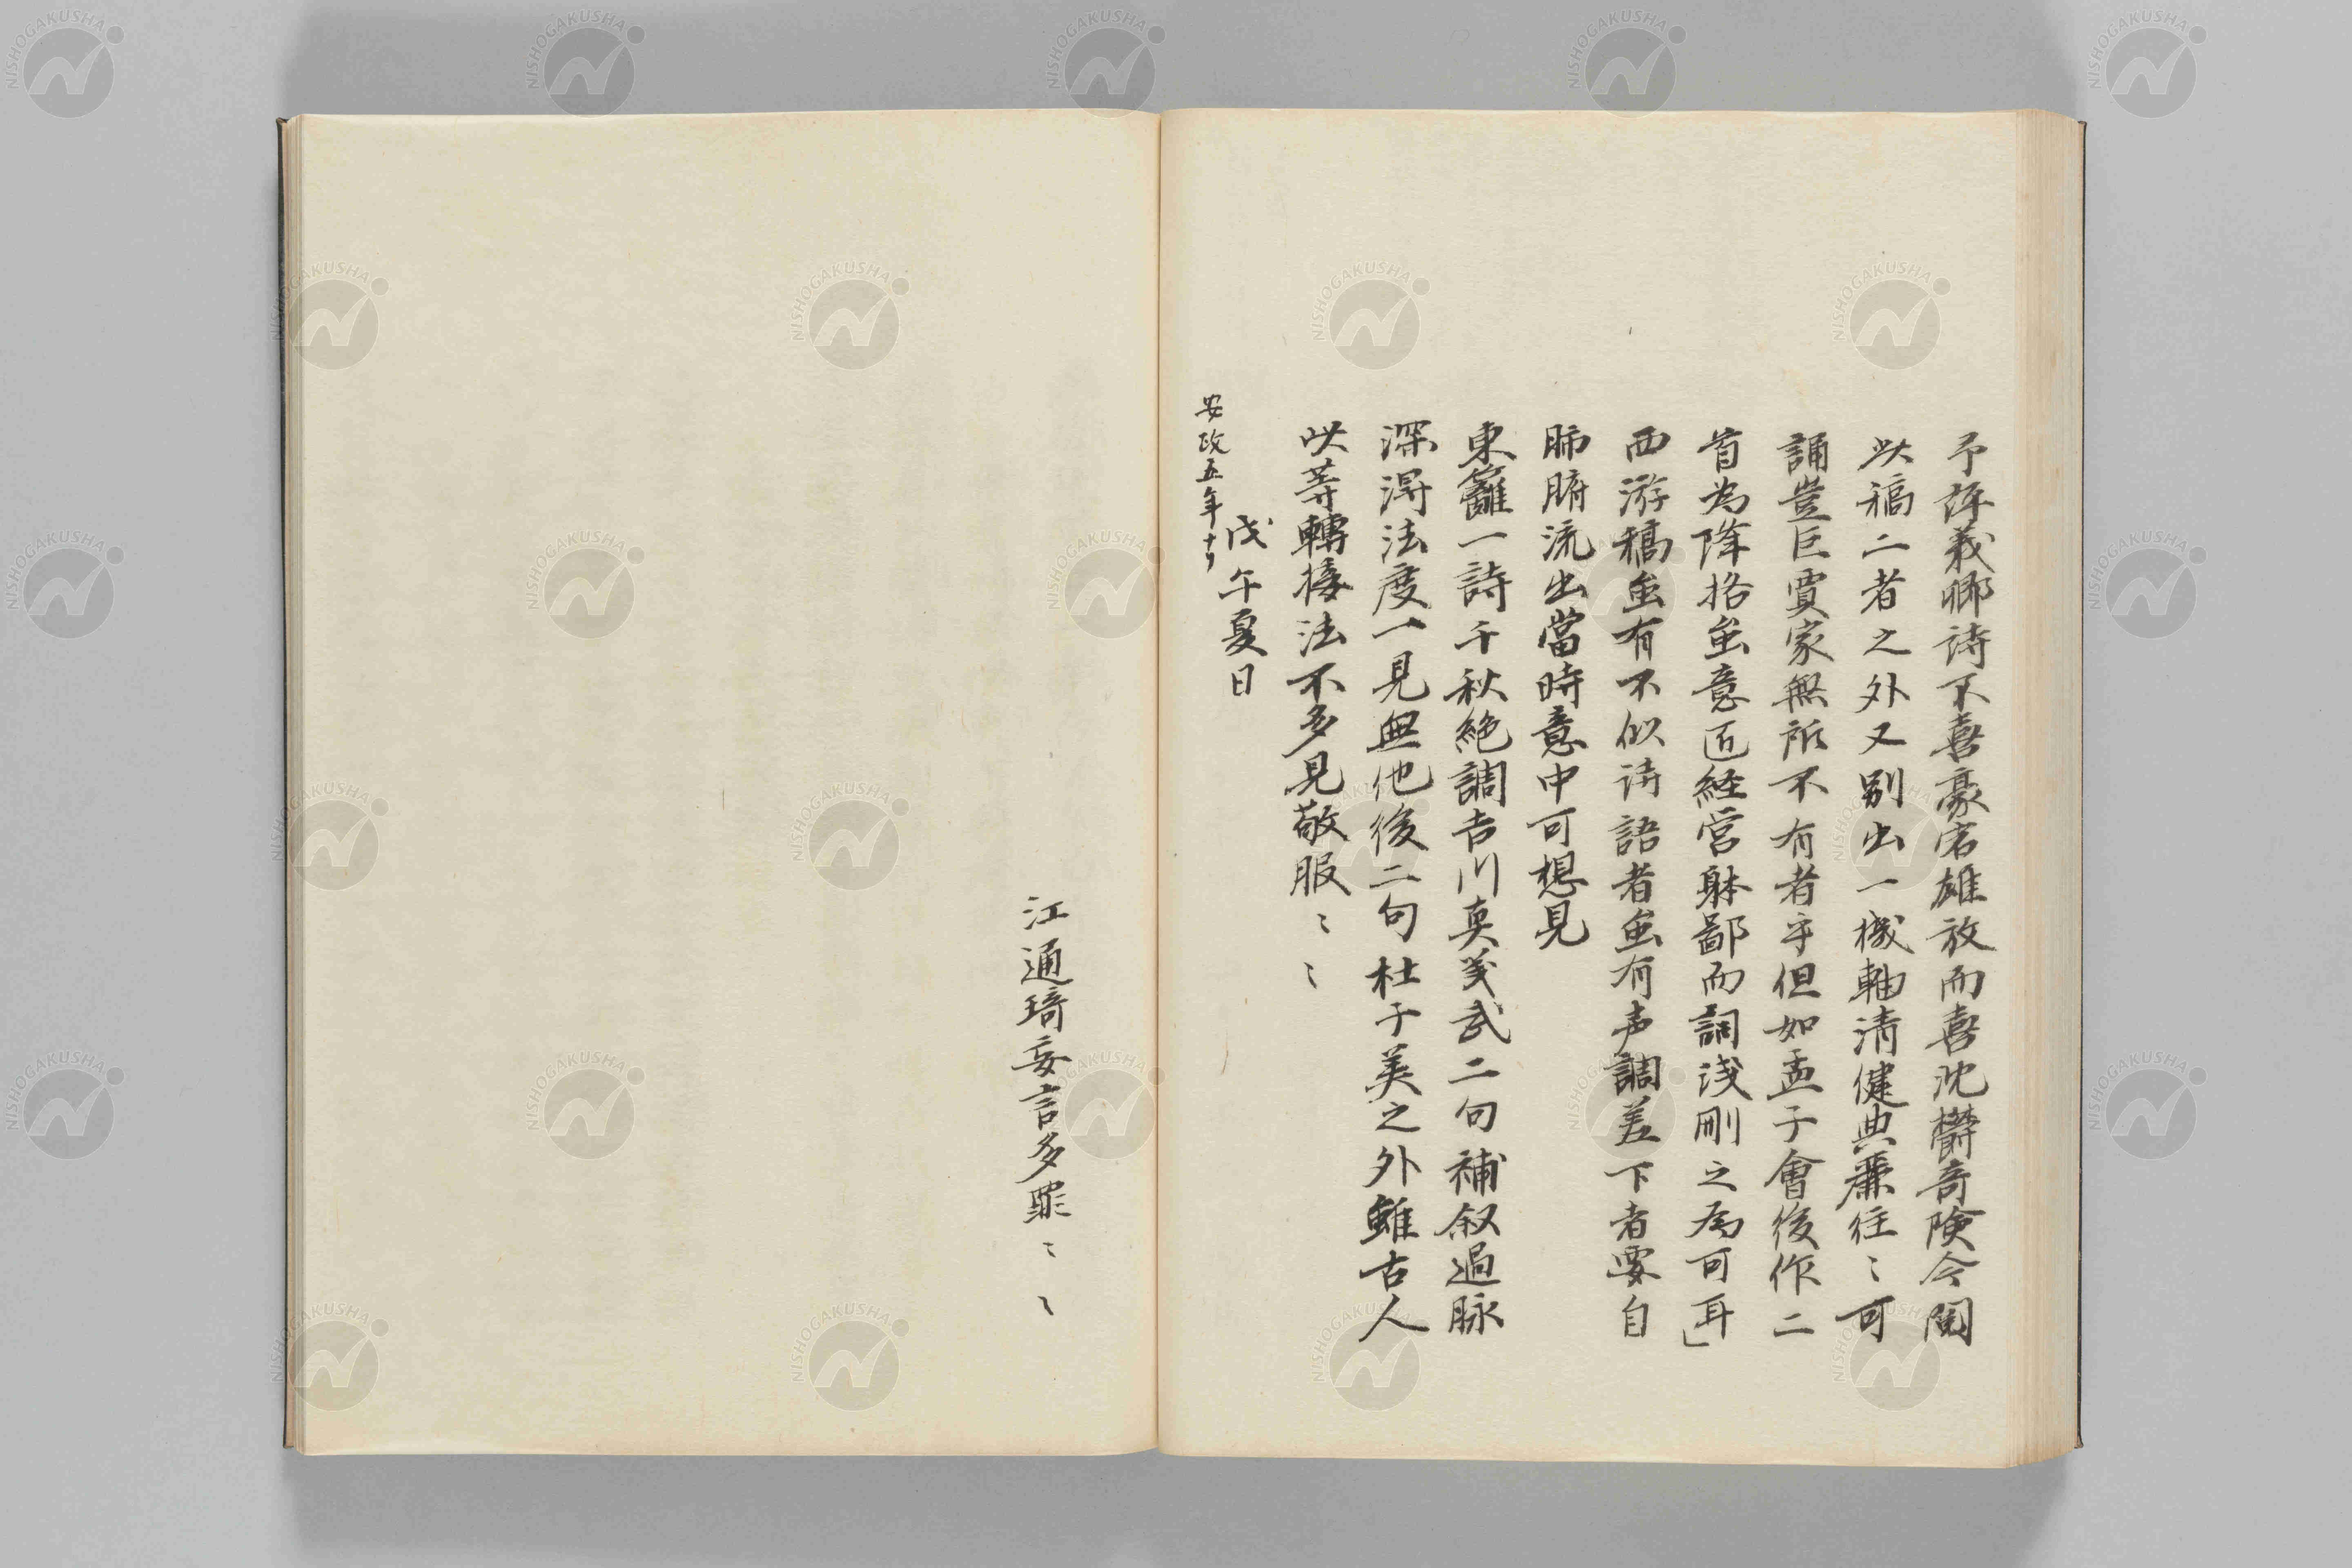 予評義卿詩不喜豪宕雄放而喜沈欝奇險今閲
此稿二者之外又別出一機軸清健典麗往〻可
誦豈巨賈家無所不有者乎但如孟子會後作二
首為降格虽意匠経営躰鄙而詞淺刪之為可耳」
西游稿虽有不似詩語者虽有声調差下者要自
肺腑流出當時意中可想見
東籬一詩千秋絶調吉川真義武二句補叙過脉
深得法度一見無他後二句杜子美之外雖古人
此等轉接法不多見敬服〻〻
戊午夏日
安政五年ナリ
江通琦妄言多罪〻〻
NISHOGAKUSHA